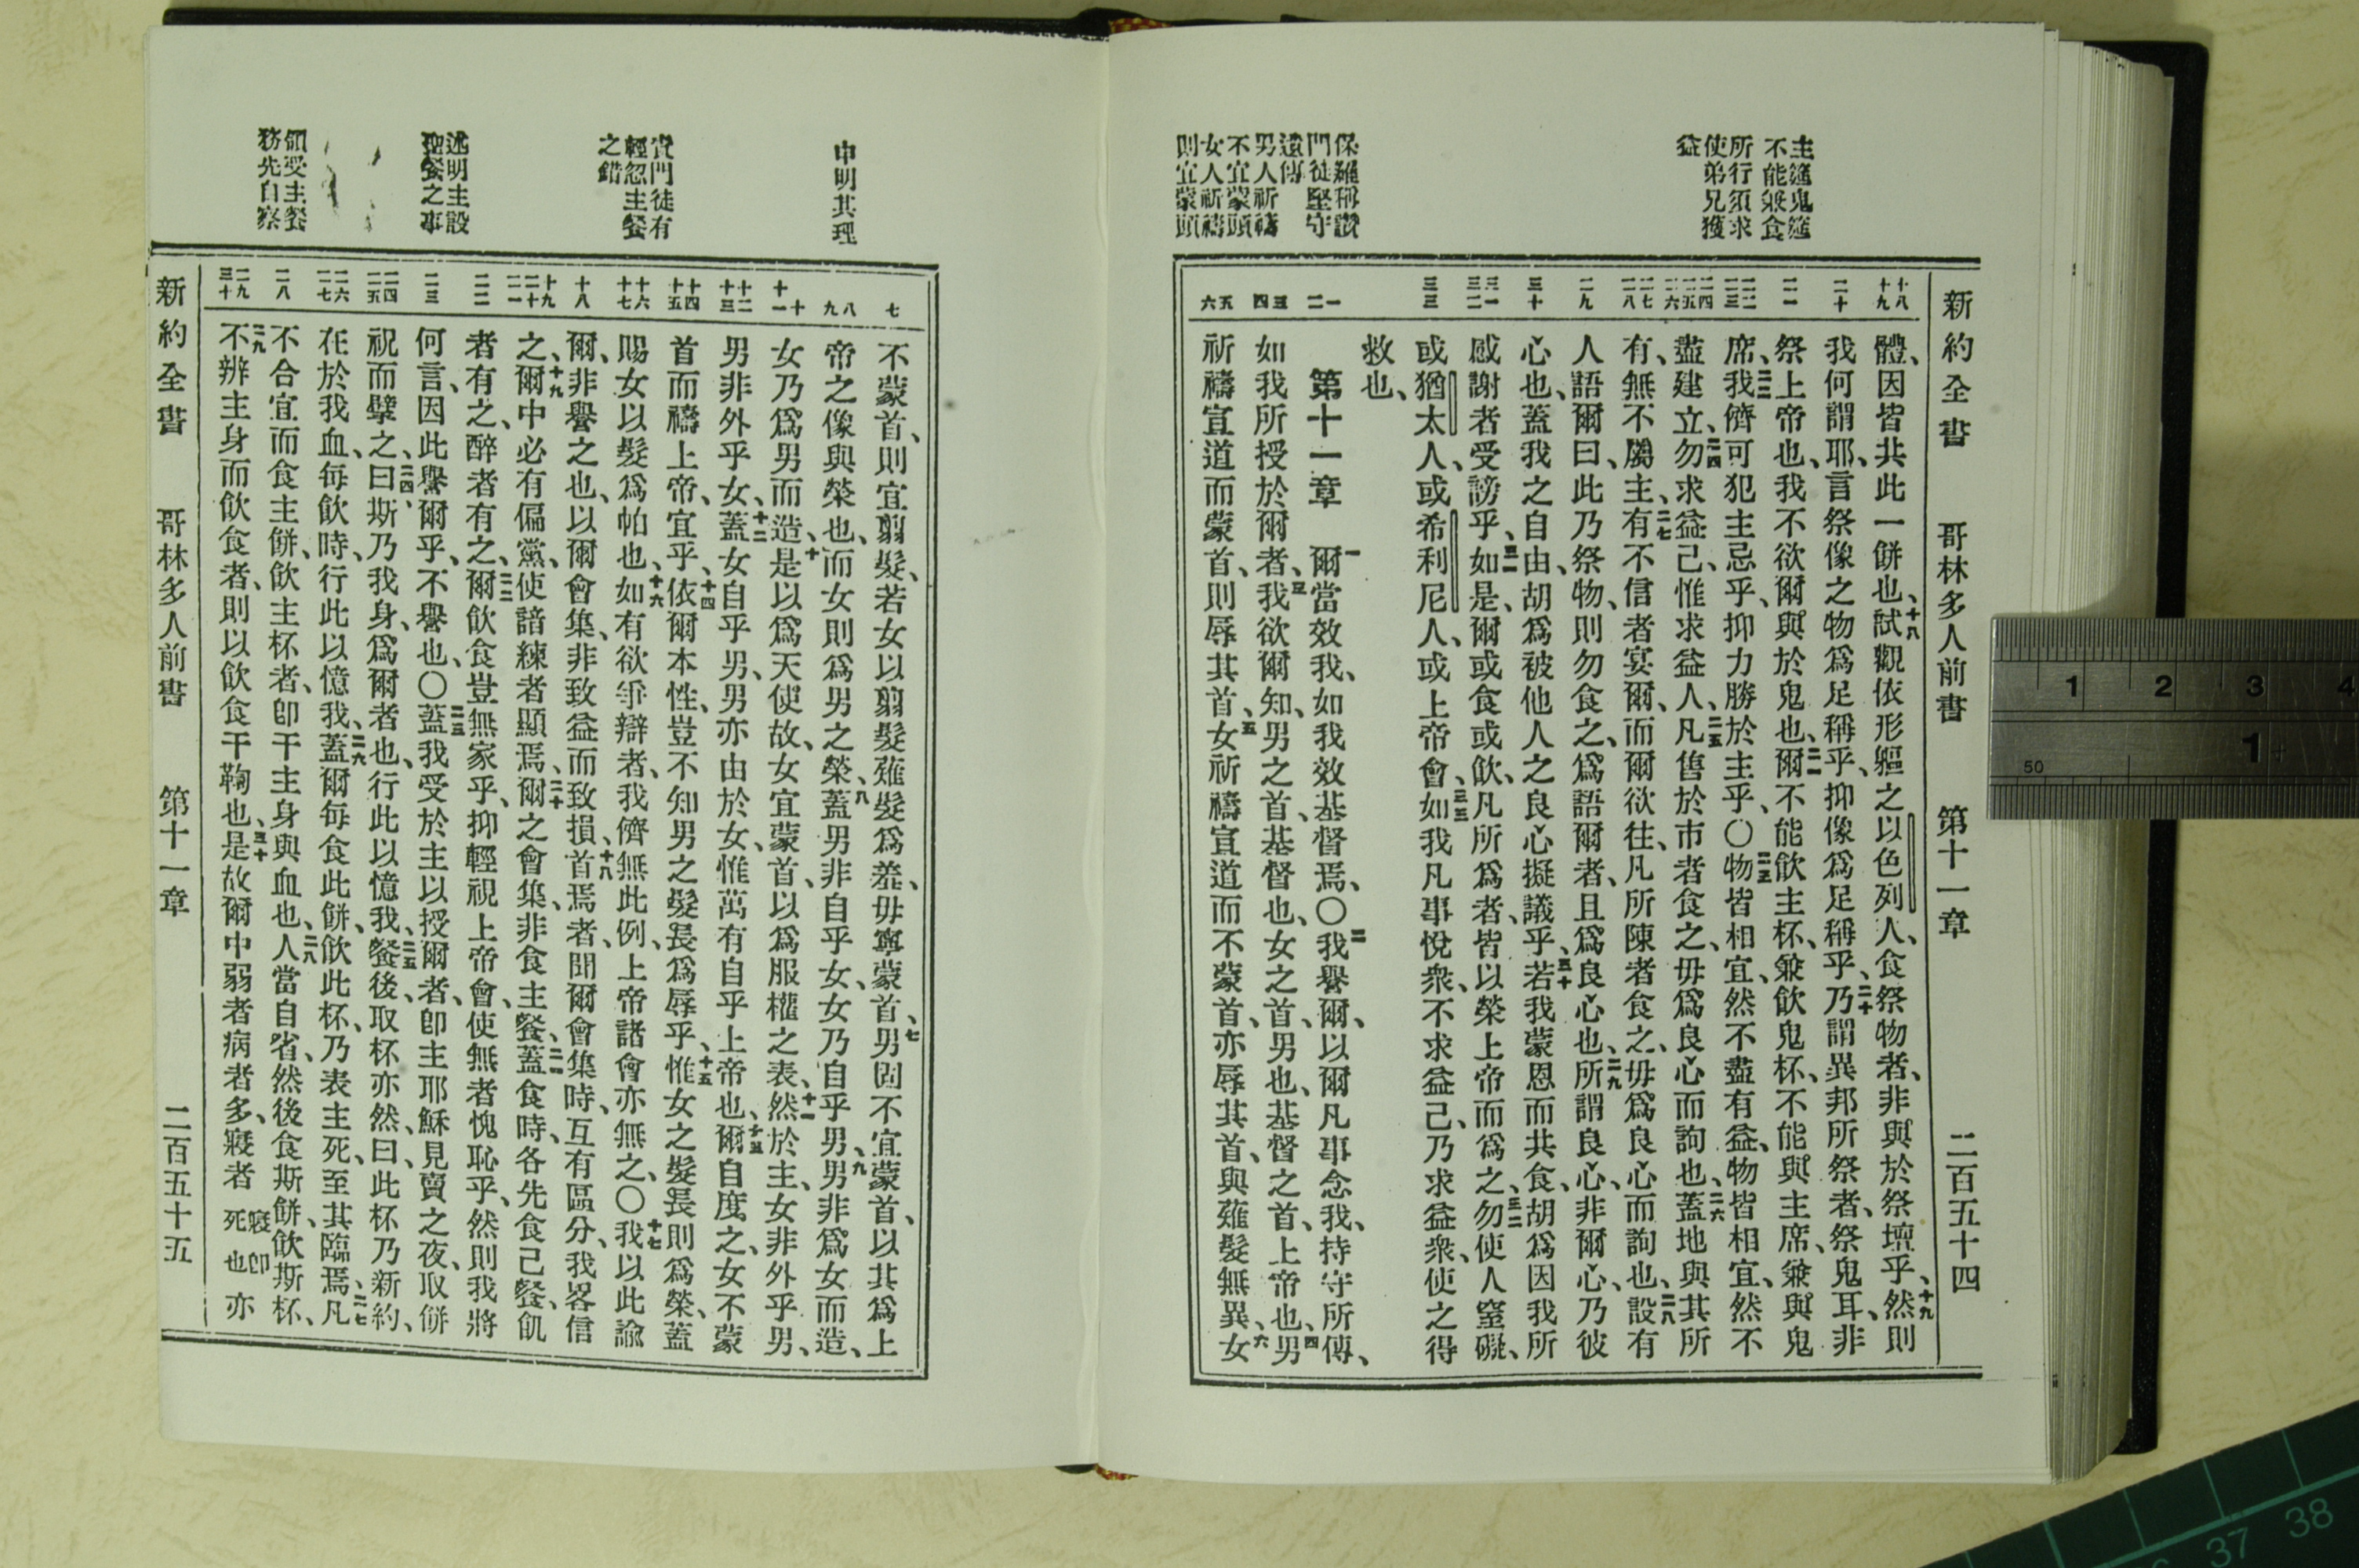 新約全書 哥林多人前書 第十一章 二百五十四
主筵鬼筵
不能兼食
所行須求
使弟兄獲
益
保羅稱讚
門徒堅守
遺傳
男人祈禱
不宜蒙頭
女人祈禱
則宜蒙頭
十八 十九
二十
二一
二二 二三
二四 二五 二六
二七 二八
二九
三十
三一 三二
三三
一 二
三 四
五 六
體、因皆共此一餅也、十八試觀依形軀之以色列人、食祭物者、非與於祭壇乎、十九然則
我何謂耶、言祭像之物爲足稱乎、抑像爲足稱乎、二十乃謂異邦所祭者、祭鬼耳、非
祭上帝也、我不欲爾與於鬼也、二一爾不能飲主杯、兼飲鬼杯、不能與主席、兼與鬼
席、二二我儕可犯主忌乎、抑力勝於主乎、〇二三物皆相宜、然不盡有益、物皆相宜、然不
盡建立、二四勿求益己、惟求益人、二五凡售於市者食之、毋爲良心而詢也、二六蓋地與其所
有、無不屬主、二七有不信者宴爾、而爾欲往、凡所陳者食之、毋爲良心而詢也、二八設有
人語爾曰、此乃祭物、則勿食之、爲語爾者、且爲良心也、二九所謂良心、非爾心、乃彼
心也、蓋我之自由、胡爲被他人之良心擬議乎、三十若我蒙恩而共食、胡爲因我所
感謝者受謗乎、三一如是、爾或食或飲、凡所爲者、皆以榮上帝而爲之、三二勿使人窒礙、
或猶太人、或希利尼人、或上帝會、三三如我凡事悅衆、不求益己、乃求益衆、使之得
救也、
第十一章 一爾當效我、如我效基督焉、〇二我譽爾、以爾凡事念我、持守所傳、
如我所授於爾者、三我欲爾知、男之首、基督也、女之首、男也、基督之首、上帝也、四男
祈禱宣道而蒙首、則辱其首、五女祈禱宣道而不蒙首、亦辱其首、與薙髮無異、六女
申明其理
責門徒有
輕忽主餐
之錯
述明主設
聖餐之事
領受主餐
務先自察
七
八 九
十 十一
十二 十三
十四 十五
十六 十七
十八
十九 二十 二一
二二
二三
二四 二五
二六 二七
二八
二九 三十
不蒙首、則宜翦髮、若女以翦髮薙髮爲羞、毋寧蒙首、七男固不宜蒙首、以其爲上
帝之像與榮也、而女則爲男之榮、八蓋男非自乎女、女乃自乎男、九男非爲女而造、
女乃爲男而造、十是以爲天使故、女宜蒙首、以爲服權之表、十一然於主、女非外乎男、
男非外乎女、十二蓋女自乎男、男亦由於女、惟萬有自乎上帝也、十三爾自度之、女不蒙
首而禱上帝、宜乎、十四依爾本性、豈不知男之髮長爲辱乎、十五惟女之髮長則爲榮、蓋
賜女以髮爲帕也、十六如有欲爭辯者、我儕無此例、上帝諸會亦無之、〇十七我以此諭
爾、非譽之也、以爾會集、非致益而致損、十八首焉者、聞爾會集時、互有區分、我畧信
之、十九爾中必有偏黨、使諳練者顯焉、二十爾之會集、非食主餐、二一蓋食時、各先食己餐、飢
者有之、醉者有之、二二爾飲食豈無家乎、抑輕視上帝會、使無者愧恥乎、然則我將
何言、因此譽爾乎、不譽也、〇二三蓋我受於主以授爾者、卽主耶穌見賣之夜、取餅
祝而擘之、二四曰、斯乃我身、爲爾者也、行此以憶我、二五餐後、取杯亦然、曰、此杯乃新約、
在於我血、每飲時、行此以憶我、二六蓋爾每食此餅、飲此杯、乃表主死、至其臨焉、二七凡
不合宜而食主餅、飲主杯者、卽干主身與血也、二八人當自省、然後食斯餅、飲斯杯、
二九不辨主身而飲食者、則以飲食干鞫也、三十是故爾中弱者病者多、寢者寢卽死也亦
新約全書 哥林多人前書 第十一章 二百五十五
1 2 3 4
50 1
37 38